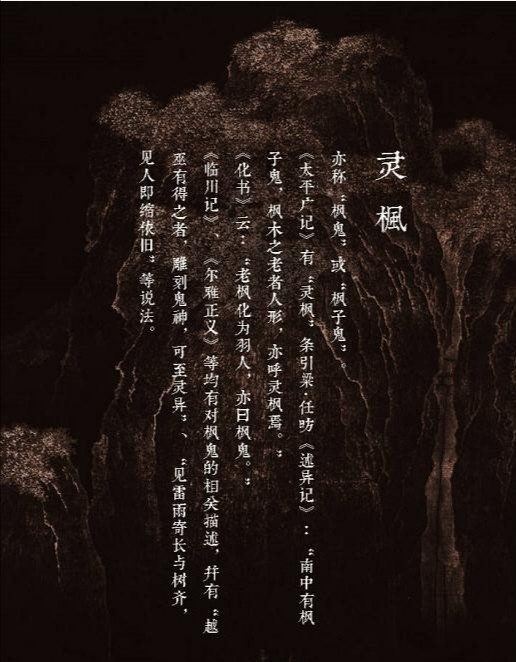 灵楓
亦称“枫鬼”或“枫子鬼”。
《太平广记》有“灵枫”条引梁·任昉《述异记》：“南中有枫
子鬼，枫木之老者人形，亦呼灵枫焉。”
《化书》云：“老枫化为羽人，亦曰枫鬼。”
《临川记》、《尔雅正义》等均有对枫鬼的相关描述，并有“越
巫有得之者，雕刻鬼神，可至灵异”、“见雷雨寄长与树齐，
见人即缩依旧”等说法。